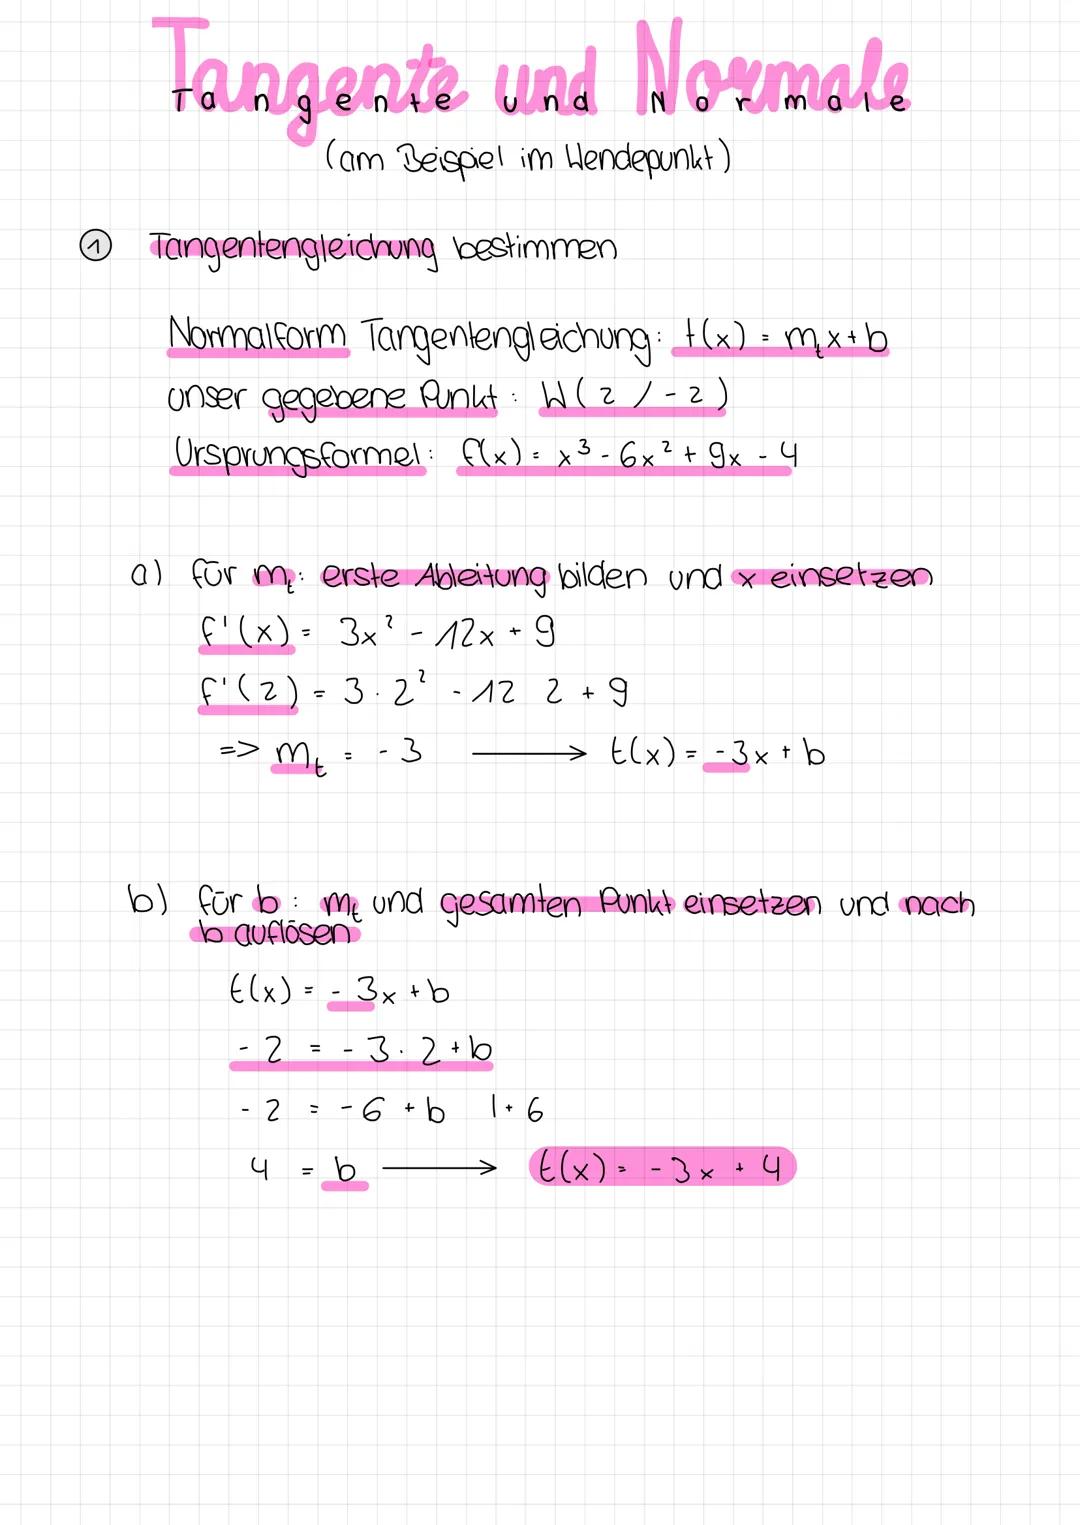 Tangente und Normale
(am Beispiel im Wendepunkt)
① Tangentengleichung bestimmen
Normalform Tangentengleichung: t(x) = mₜx+b
unser gegebene Punkt: W(2/-2)
Ursprungsformel: f(x) = x³ - 6x² + 9x - 4
a) für mₜ: erste Ableitung bilden und x einsetzen
f'(x) = 3x² - 12x + 9
f'(2) = 3·2² - 12 2 + 9
=> mₜ = -3 ⟶ t(x) = -3x + b
b) für b: mₜ und gesamten Punkt einsetzen und nach
b auflösen
t(x) = -3x + b
-2 = -3·2+b
-2 = -6 + b |+6
4 = b ⟶ t(x) = -3x + 4